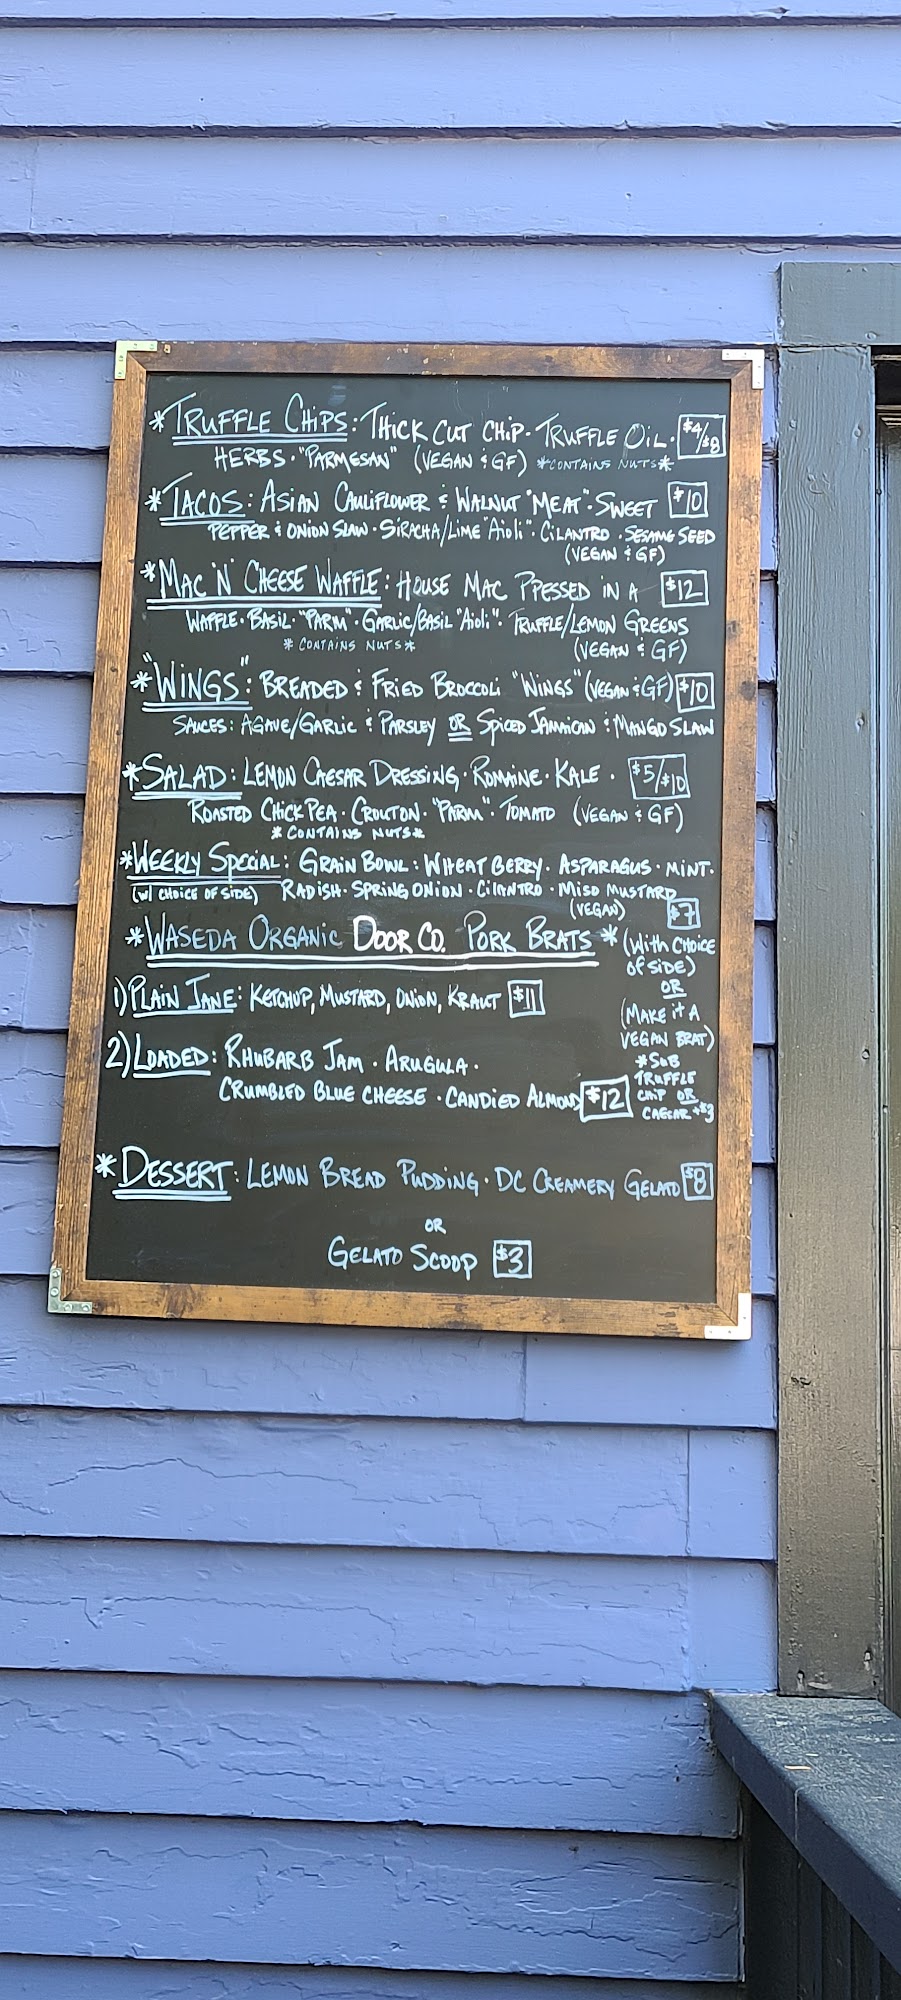 *TRUFFLE CHIPS: THICK CUT CHIP · TRUFFLE OIL · $4/$8
HERBS · "PARMESAN" (VEGAN & GF) *CONTAINS NUTS*
*TACOS: ASIAN CAULIFLOWER & WALNUT "MEAT" · SWEET $10
PEPPER & ONION SLAW · SIRACHA/LIME "AIOLI" · CILANTRO · SESAME SEED
(VEGAN & GF)
*MAC 'N' CHEESE WAFFLE: HOUSE MAC PPESSED IN A $12
WAFFLE · BASIL · "PARM" · GARLIC/BASIL "AIOLI" · TRUFFLE/LEMON GREENS
*CONTAINS NUTS* (VEGAN & GF)
*"WINGS": BREADED & FRIED BROCCOLI "WINGS" (VEGAN & GF) $10
SAUCES: AGAVE/GARLIC & PARSLEY OR SPICED JAMAICAN & MANGO SLAW
*SALAD: LEMON CAESAR DRESSING · ROMAINE · KALE · $5/$10
ROASTED CHICK PEA · CROUTON · "PARM" · TOMATO (VEGAN & GF)
*CONTAINS NUTS*
*WEEKLY SPECIAL: GRAIN BOWL: WHEAT BERRY · ASPARAGUS · MINT ·
(W/ CHOICE OF SIDE) RADISH · SPRING ONION · CILANTRO · MISO MUSTARD
(VEGAN) $7
*WASEDA ORGANIC DOOR CO. PORK BRATS*
(WITH CHOICE
OF SIDE)
OR
(MAKE IT A
VEGAN BRAT)
*SUB
TRUFFLE
CHIP OR
CAESAR +$3
1) PLAIN JANE: KETCHUP, MUSTARD, ONION, KRAUT $11
2) LOADED: RHUBARB JAM · ARUGULA ·
CRUMBLED BLUE CHEESE · CANDIED ALMOND $12
*DESSERT: LEMON BREAD PUDDING · DC CREAMERY GELATO $8
OR
GELATO SCOOP $3